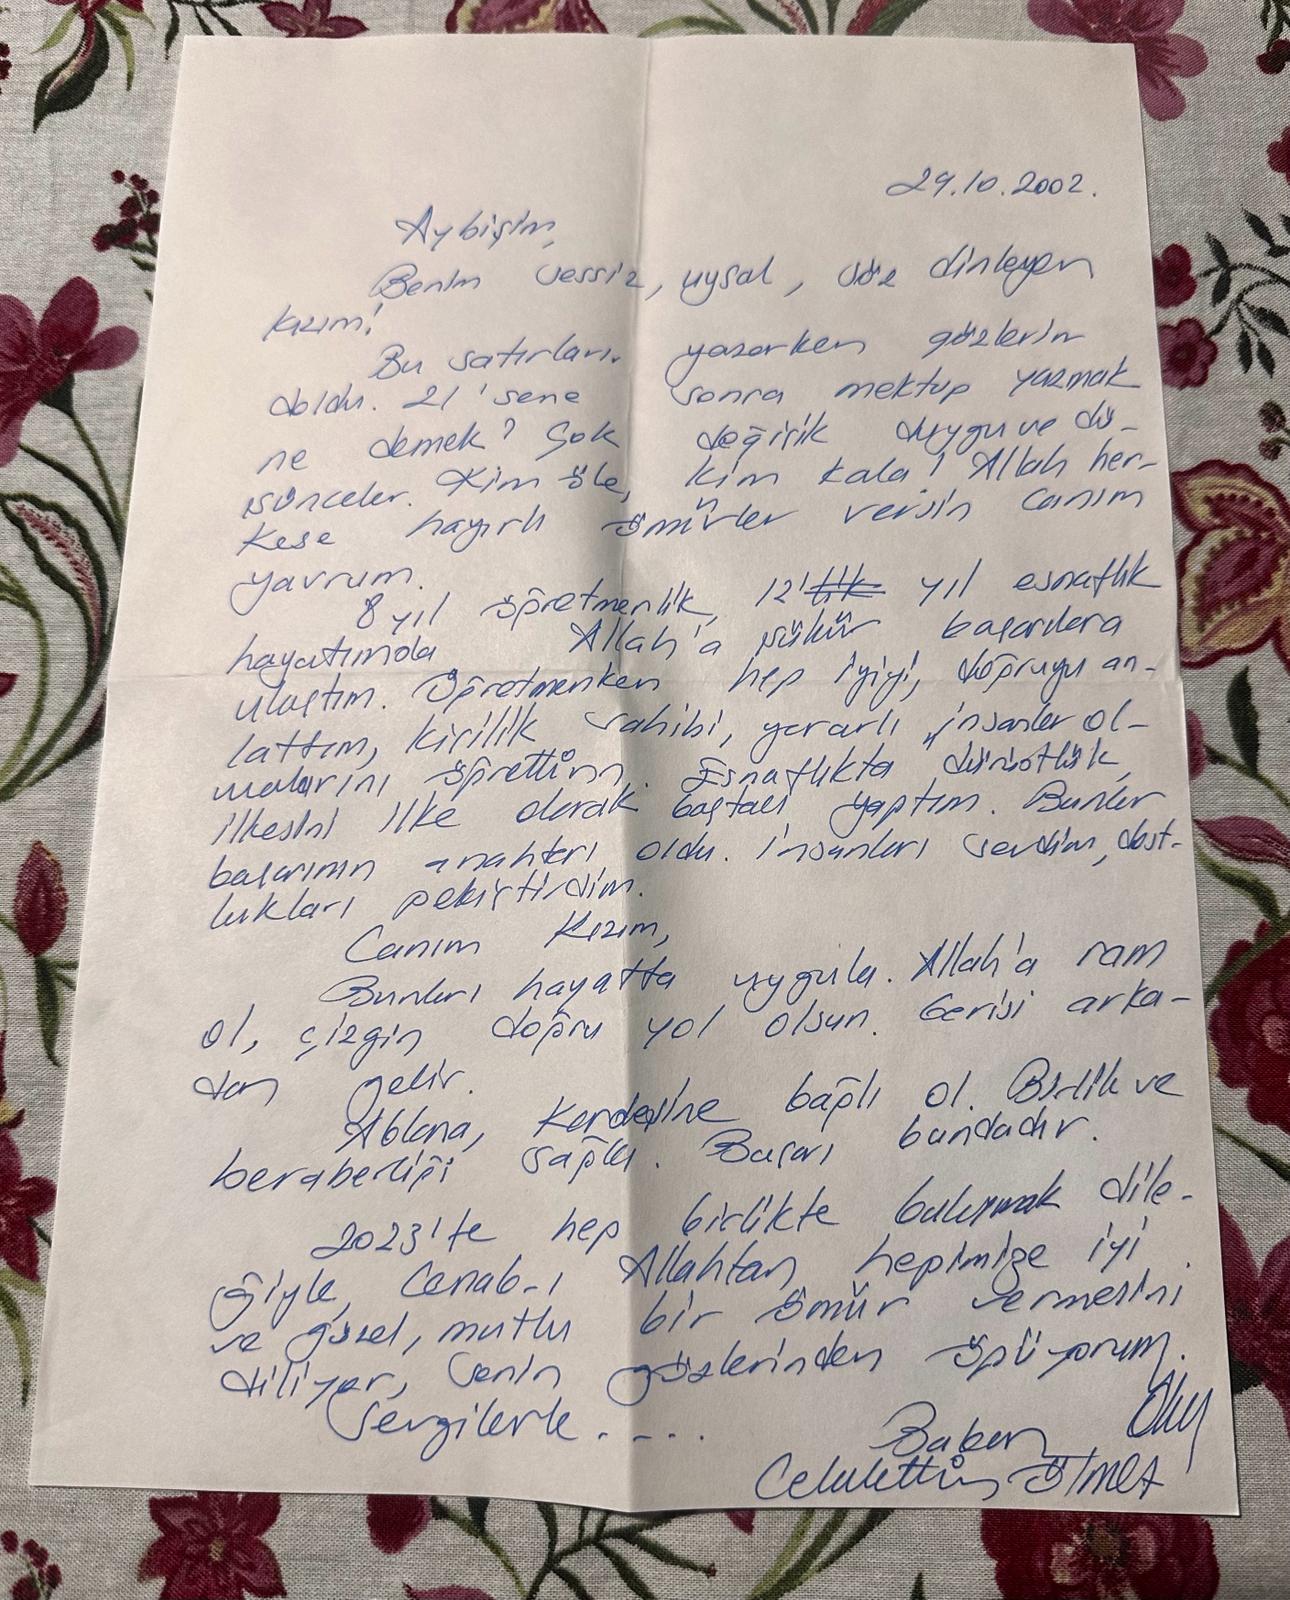 29.10.2002.
Aybişim,
Benim sessiz, uysal, söz dinleyen
kızım!
Bu satırları yazarken gözlerim
doldu. 21 sene sonra mektup yazmak
ne demek? Çok değişik duygu ve dü-
şünceler. Kim öle, kim kala! Allah her-
kese hayırlı ömürler versin canım
yavrum.
8 yıl öğretmenlik, 12' yıl esnaflık
hayatımda Allah'a şükür başarılara
ulaştım. Öğretmenken hep iyiyi, doğruyu an-
lattım, kişilik sahibi, yararlı insanlar ol-
malarını öğrettim. Esnaflıkta dürüstlük
ilkesini ilke olarak baştacı yaptım. Bunlar
başarının anahtarı oldu. İnsanları sevdim, dost-
lukları pekiştirdim.
Canım kızım,
Bunları hayatta uygula. Allah'a ram
ol, çizgin doğru yol olsun. Gerisi arka-
dan gelir.
Ablana, kardeşine bağlı ol. Birlik ve
beraberliği sağla. Başarı bundadır.
2023'te hep birlikte buluşmak dile-
ğiyle, Cenab-ı Allahtan hepimize iyi
ve güzel, mutlu bir ömür vermesini
diliyor, senin gözlerinden öpüyorum.
Sevgilerle....
Baban
Celalettin Ölmez